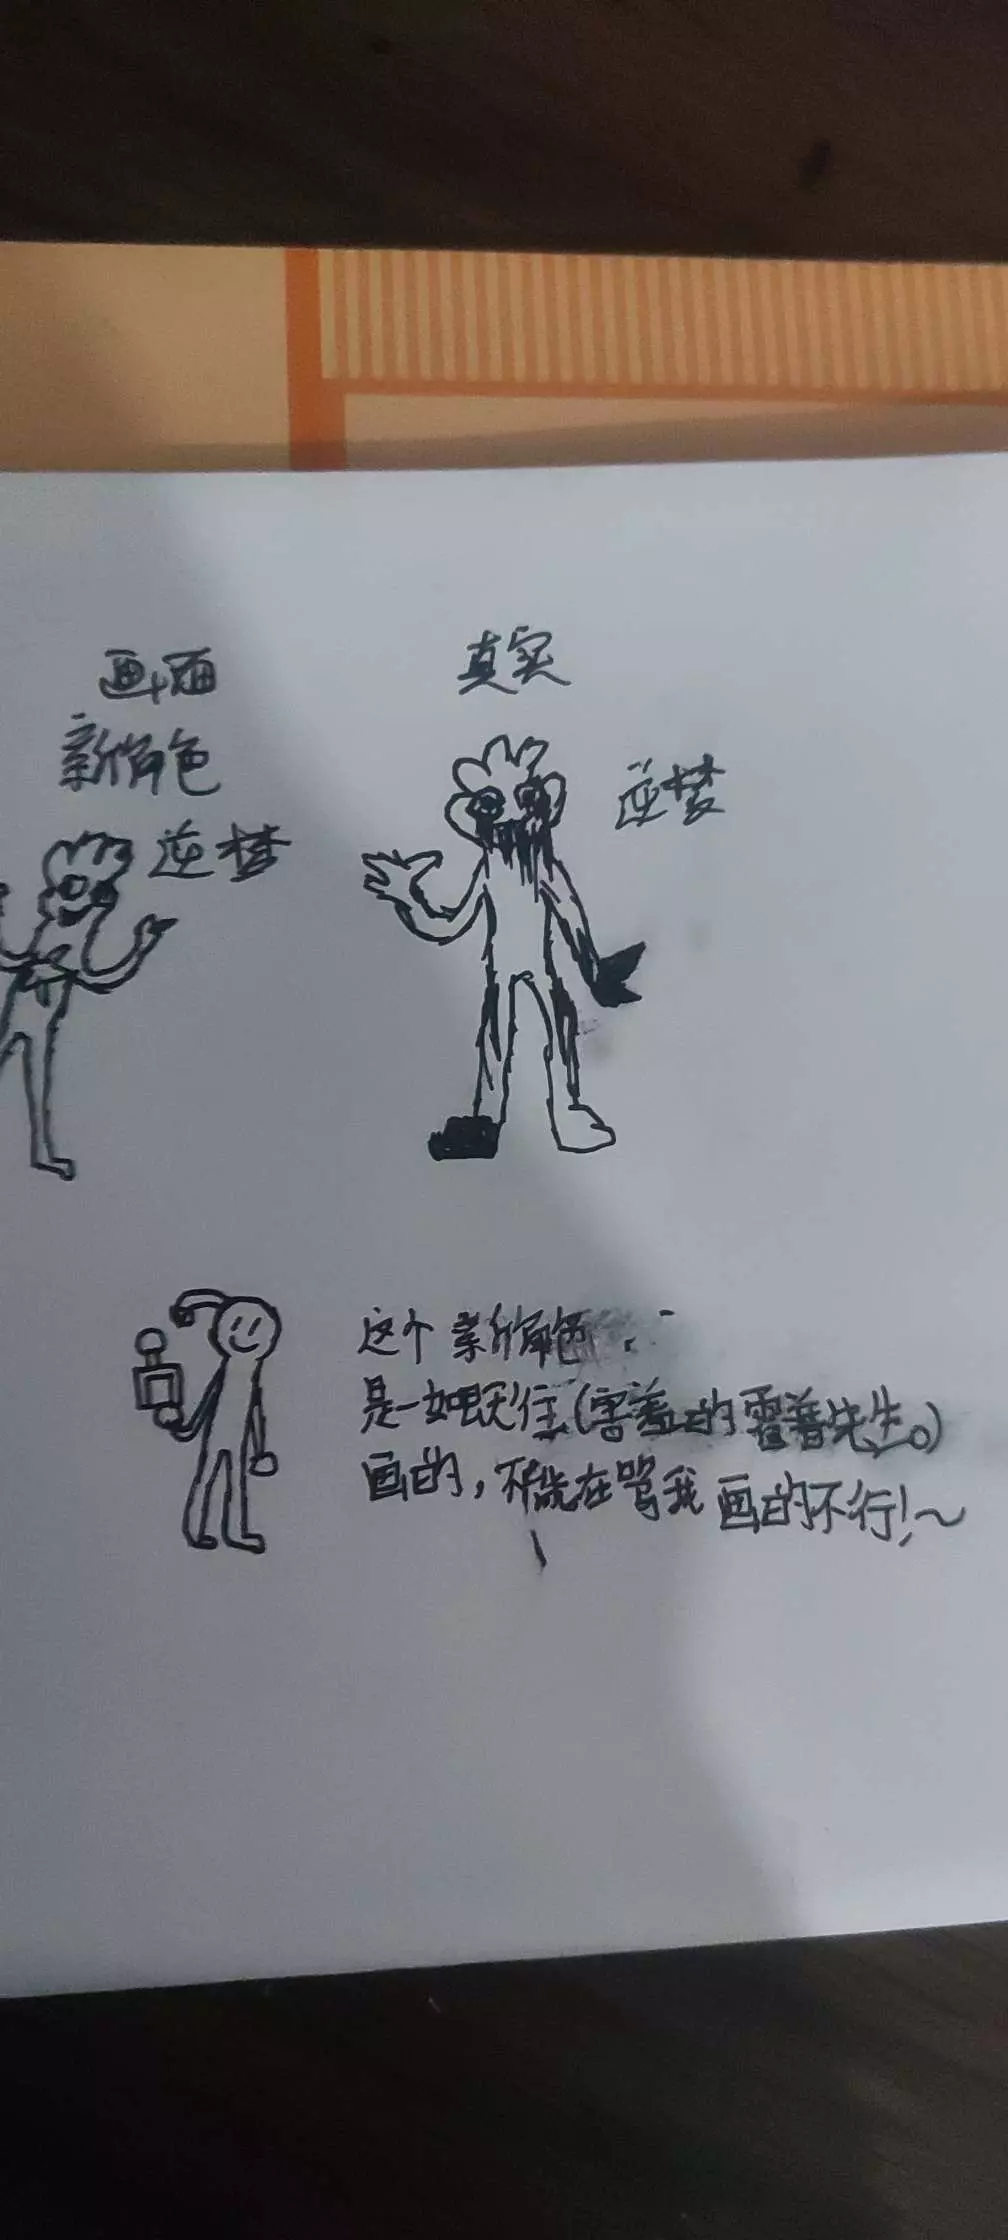 画面
新角色
逆梦
真实
逆梦
这个新角色
是一如既往(害羞的霍普先生。)
画的，不能在骂我画的不行!~